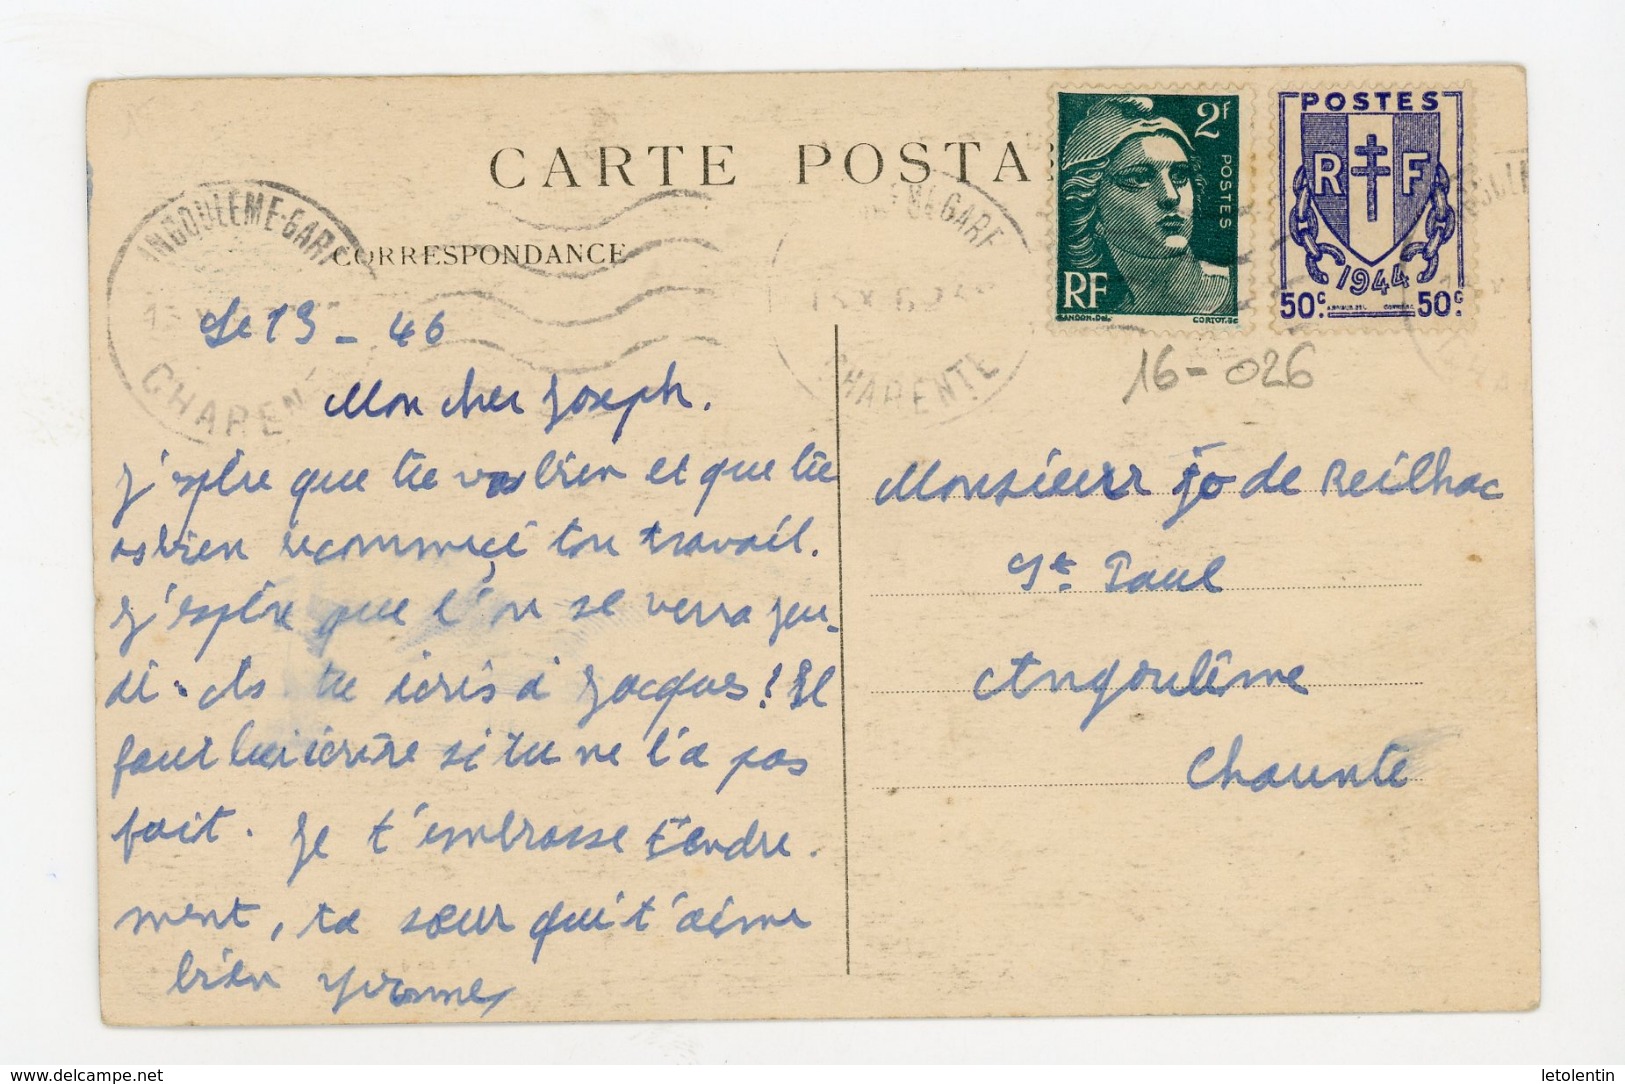 CARTE POSTA
CORRESPONDANCE
ANGOULEME-GARE
CHARENTE
Le 13 - 46
Mon cher Joseph.
J'espère que tu vas bien et que tu
as bien recommencé ton travail.
J'espère que l'on se verra jeu-
di. As tu écris à Jacques! Il
faut lui écrire si tu ne l'a pas
fait. Je t'embrasse tendre.
ment, ta sœur qui t'aime
bien Yvonne
2f
POSTES
RF
GANDON.Del.
CORTOT.Sc
POSTES
R F
1944
50c. 50c
ME GARE
CHARENTE
16-026
Monsieur Jo de Reilhac
St Paul
Angoulême
Charente
www.delcampe.net
letolentin